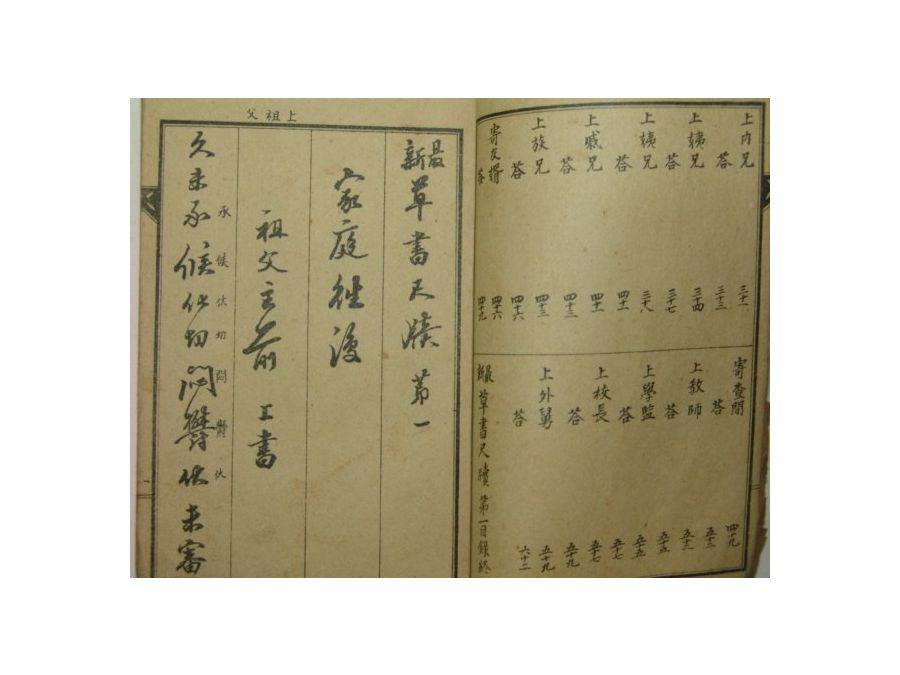 上内兄 三十一
答 三十三
上姨兄 三十四
答 三十七
上姨兄 三十八
答 四十一
上戚兄 四十一
答 四十三
上族兄 四十三
答 四十六
寄友壻 四十六
答 四十九
寄査間 四十九
答 五十三
上教師 五十三
答 五十五
上學監 五十五
答 五十七
上校長 五十七
答 五十九
上外舅 五十九
答 六十二
最新草書尺牘 第一目錄終
上祖父
最新草書尺牘 第一
家庭往復
祖父主前 上書
承候伏切悶鬱伏
久未承候伏切悶鬱伏未審